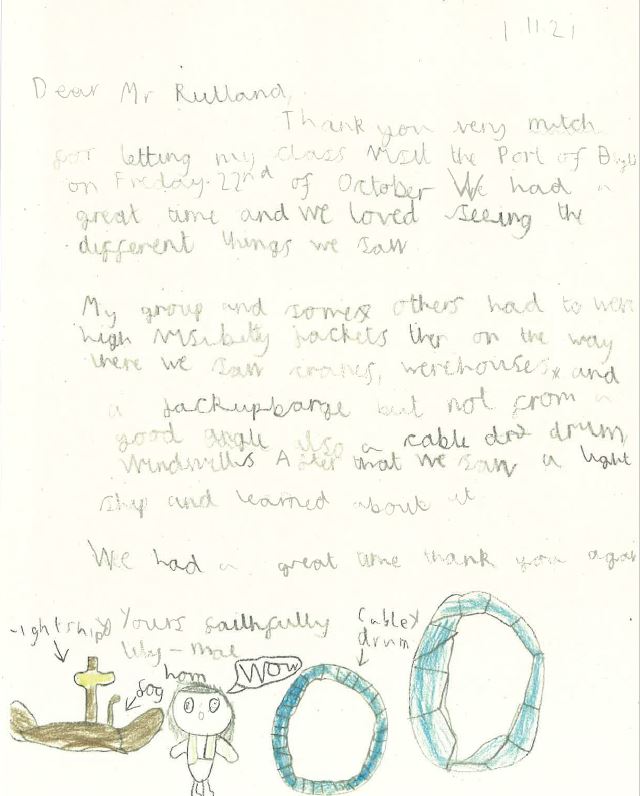 1 11 21
Dear Mr Rulland,
Thank you very mutch
for letting my class visit the Port of
on Freday 22nd of October We had a
great time and we loved seeing the
different things we saw
My group and somes others had to were
high visibelty jackets then on the way
there we saw cranes, werehouses and
a jackupbarge but not from a
good angle also a cable drum
windmills After that we saw a light
ship and learned about it
We had a great time thank you again
Yours faithfully
lily-mae
lightship
fog horn
Wow
Cable
drum